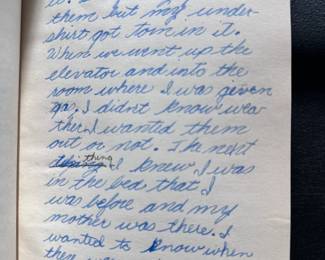 them but my under-
shirt got torn in it.
When we went up the
elevator and into the
room where I was given
gas. I didn't know wea
ther I wanted them
out or not. The next
thing I knew I was
in the bed that I
was before and my
mother was there. I
wanted to know when